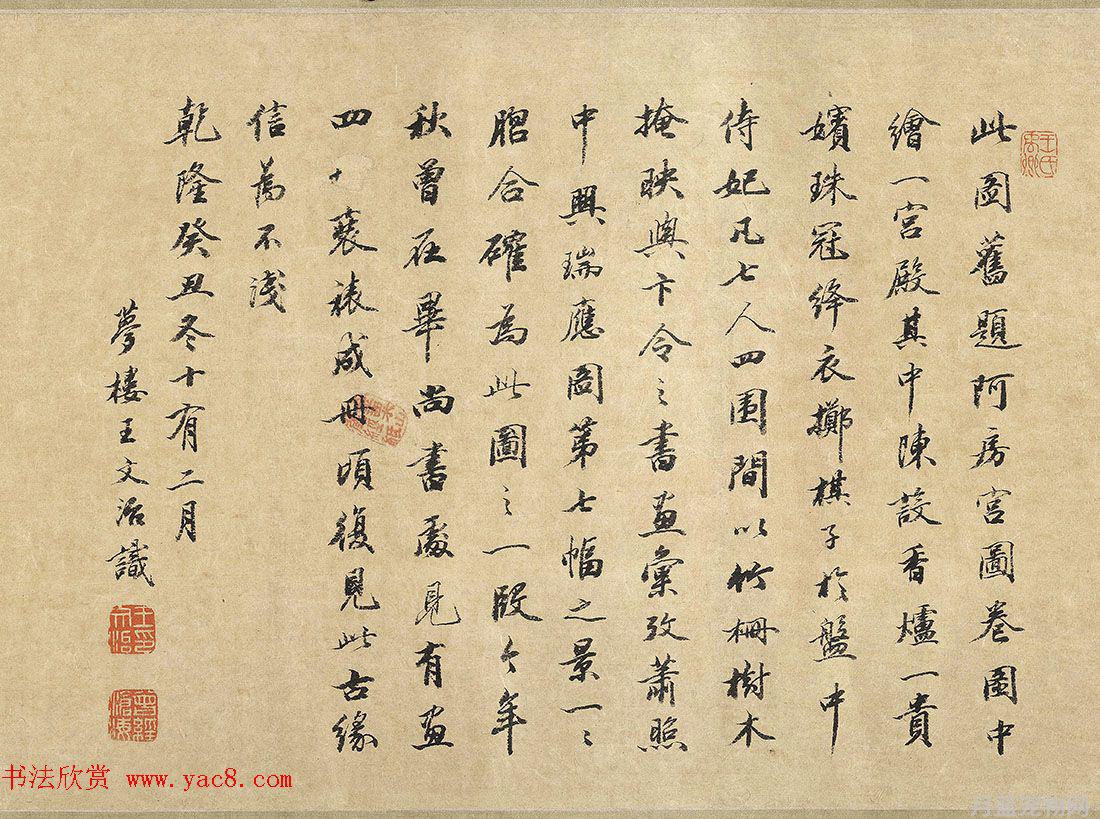 此圖舊題阿房宮圖卷圖中
繪一宮殿其中陳設香爐一貴
嬪珠冠絳衣擲棋子於盤中
侍妃凡七人四圍間以竹柵樹木
掩映與卞令之書畫彙攷蕭照
中興瑞應圖第七幅之景一〻
脗合確為此圖之一段今年
秋曾在畢尚書處見有畫
四十葉裱成冊頃復見此古緣
信為不淺
乾隆癸丑冬十有二月
夢樓王文治識
王氏禹卿
王文治印
曾經滄海
书法欣赏 www.yac8.com